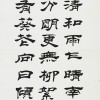 清和雨乍晴南
分明更無柳絮
有葵花向日傾